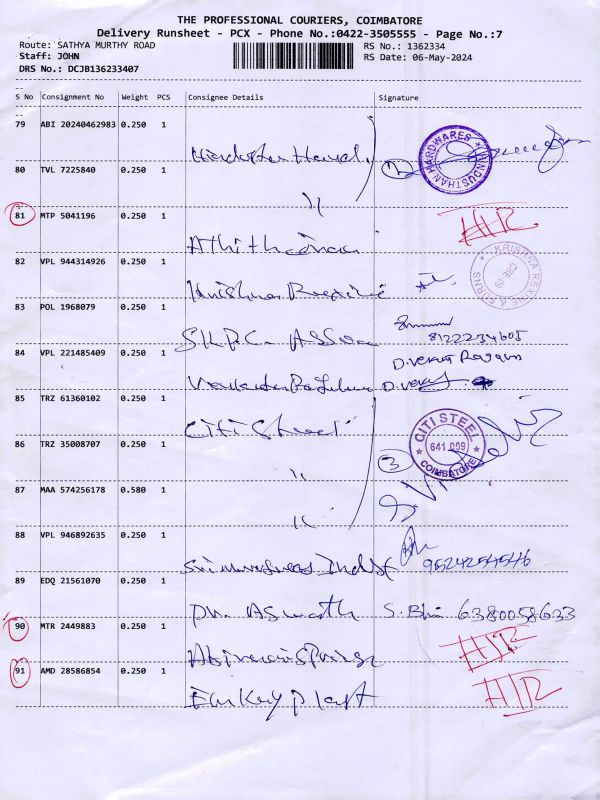 THE PROFESSIONAL COURIERS, COIMBATORE
Delivery Runsheet - PCX - Phone No.:0422-3505555 - Page No.:7
Route: SATHYA MURTHY ROAD
RS No.: 1362334
Staff: JOHN
RS Date: 06-May-2024
DRS No.: DCJB136233407
S No Consignment No Weight PCS Consignee Details Signature
79 ABI 20240462983 0.250 1
HINDUSTHAN HARDWARES
80 TVL 7225840 0.250 1
"
81 MTP 5041196 0.250 1
82 VPL 944314926 0.250 1
Krishna Rexine
KRISHNA REXINE & FURNS CBE-09
83 POL 1968079 0.250 1
8122234605
84 VPL 221485409 0.250 1
D.Venkat
85 TRZ 61360102 0.250 1
Citi Steel
CITI STEEL 641 009 COIMBATORE
86 TRZ 35008707 0.250 1
" 3
87 MAA 574256178 0.580 1
"
88 VPL 946892635 0.250 1
89 EDQ 21561070 0.250 1
Aswath 6380058633
90 MTR 2449883 0.250 1
91 AMD 28586854 0.250 1
Em Kay Plast